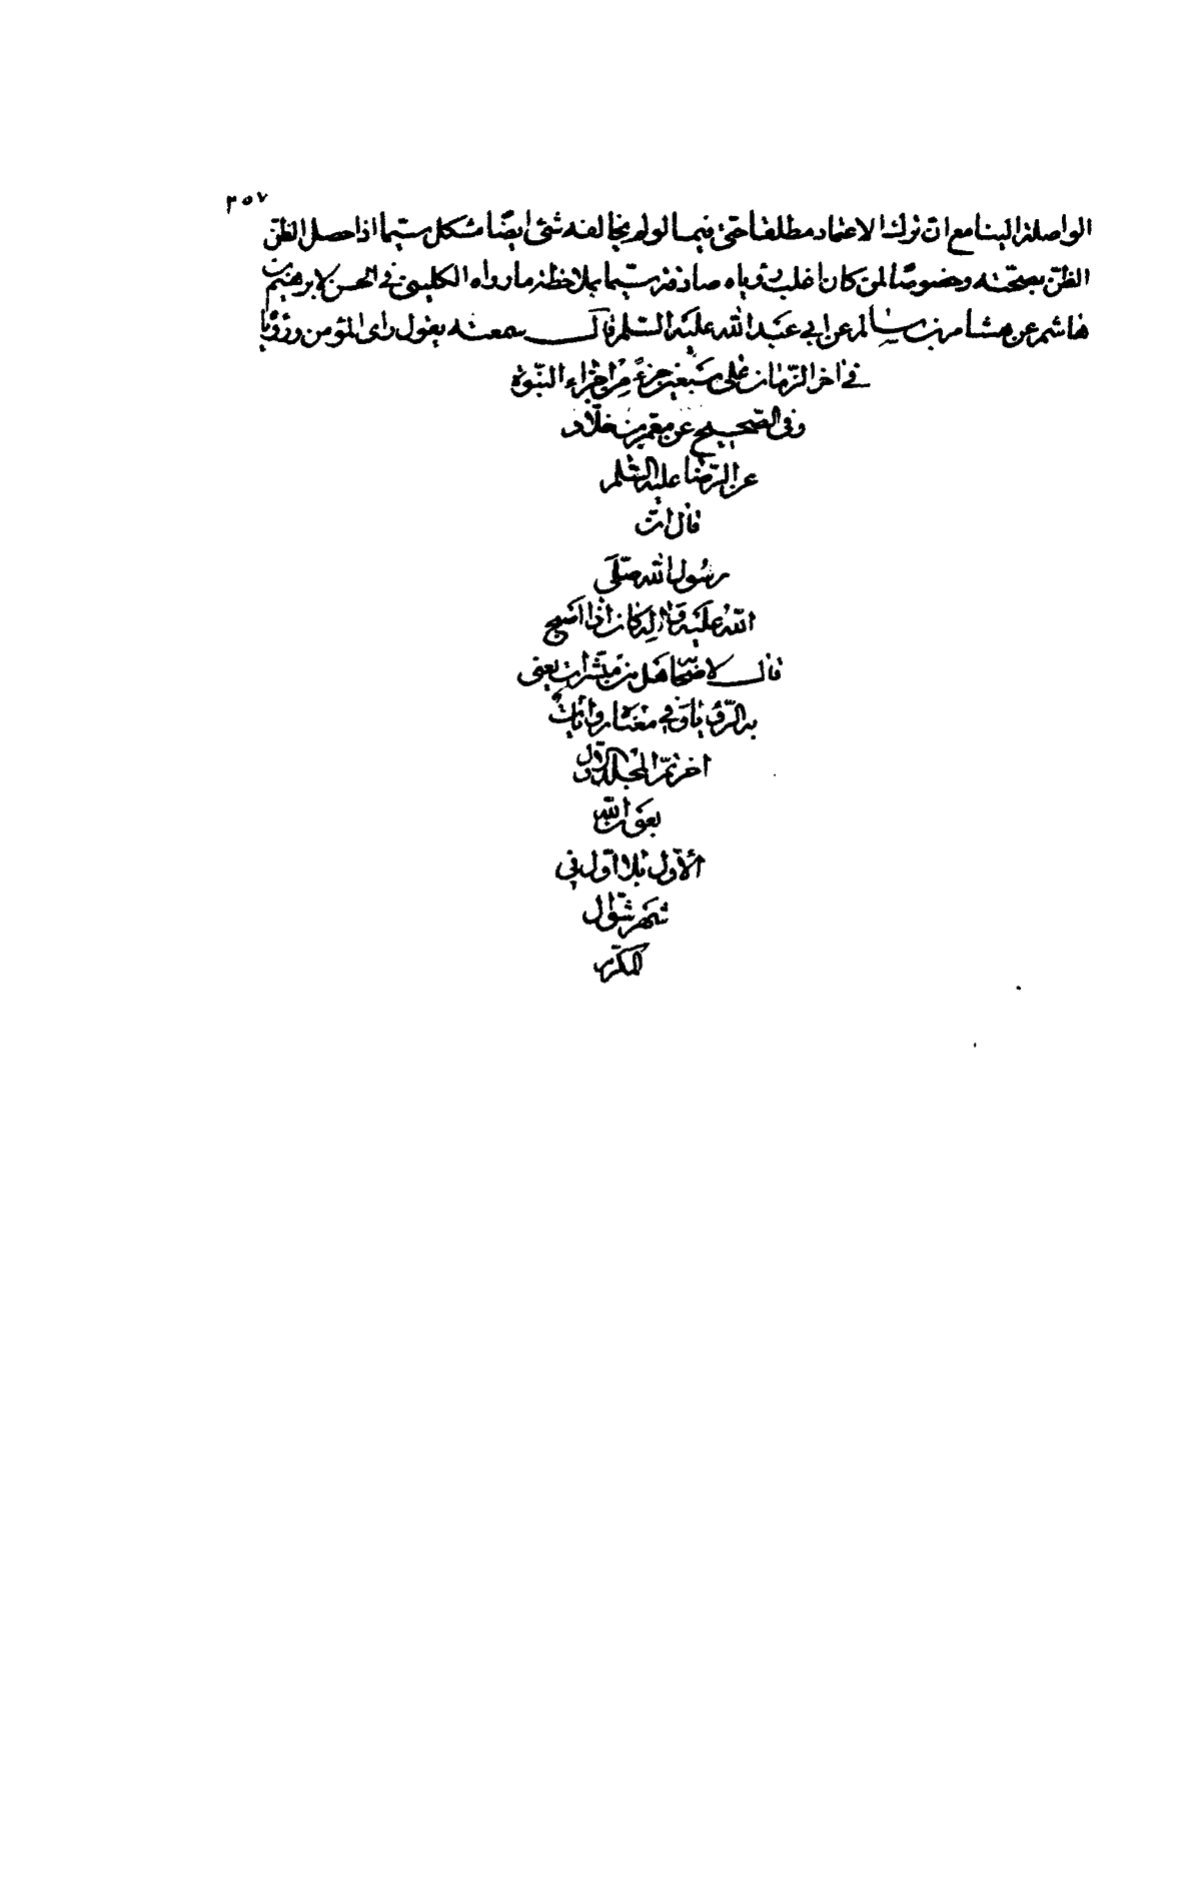 ٣٥٧
الواصلة الينا مع ان ترك الاعتماد مطلقا حتى فيما لو لم يخالفه شئ ايضا مشكل سيّما اذا حصل الظنّ
الظنّ بصحّته وخصوصًا لمن كان اغلب رؤياه صادقة سيّما بملاحظة ما رواه الكليني في الحسن لابرهيم بن
هاشم عن هشام بن سالم عن ابي عبد الله عليه السّلم قال سمعته يقول راى المؤمن ورؤيا
في اخر الزّمان على سبعين جزءً من اجزاء النبّوة
وفى الصّحيح عن معمر بن خلّاد
عن الرّضا عليه السّلم
قال انّ
رسُول الله صلّى
الله عليه واله كان اذا اصبح
قال لاصحابه هل من مبشّرات يعنى
به الرّؤيا وفي معناه روايات
اخر تمّ المجلّد الاوّل
بعون الله
الاوّل بلا اوّل فى
شهر شوّال
المكرّم